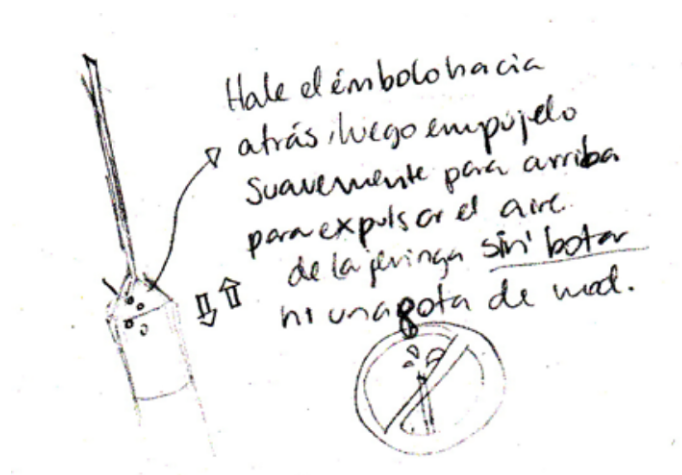 Hale el émbolo hacia
atrás, luego empújelo
suavemente para arriba
para expulsar el aire
de la jeringa sin botar
ni una gota de med.